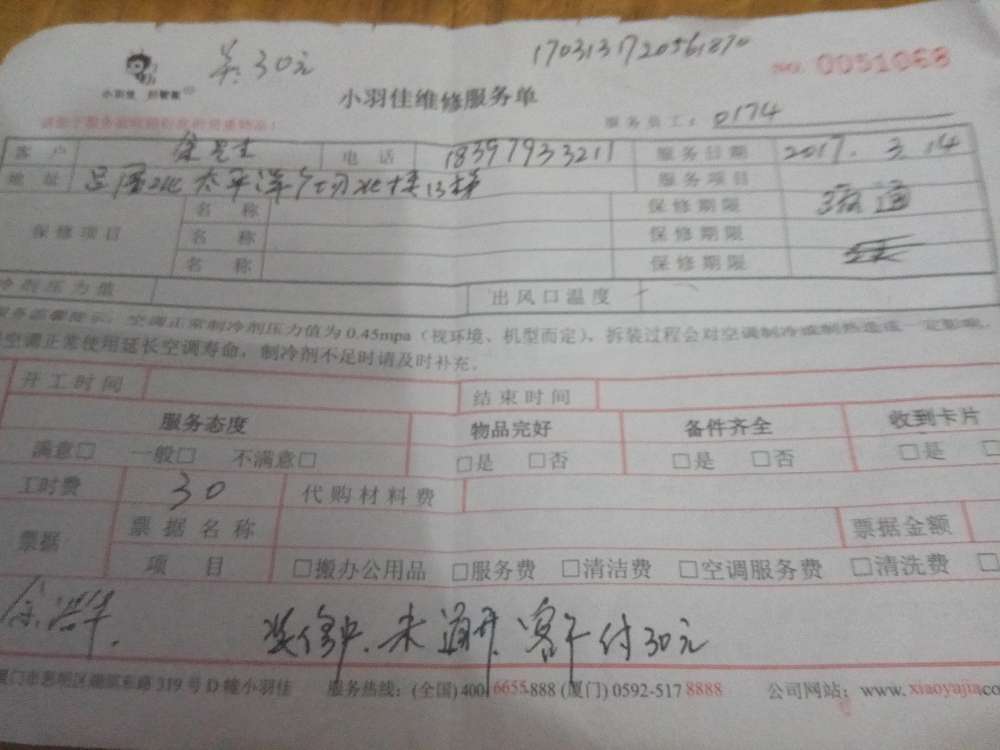 吴30元 1703131720561870
小羽佳 好管家 NO. 0051068
小羽佳维修服务单
服务员工: 0174
客户 徐先生 电话 18397933211 服务日期 2017.3.14
地址 太平洋 13楼 服务项目 疏通
保修项目 名称 保修期限
名称 保修期限
名称 保修期限
冷剂压力值 出风口温度
服务温馨提示：空调正常制冷剂压力值为0.45mpa（视环境、机型而定），拆装过程会对空调制冷或制热造成一定影响，
空调正常使用延长空调寿命，制冷剂不足时请及时补充。
开工时间 结束时间
服务态度 物品完好 备件齐全 收到卡片
满意□ 一般□ 不满意□ □是 □否 □是 □否 □是 □
工时费 30 代购材料费
票据 票据名称 票据金额
项目 □搬办公用品 □服务费 □清洁费 □空调服务费 □清洗费 □
装修中.未通开.客户付30元
厦门市思明区湖滨东路319号D幢小羽佳 服务热线：(全国)400 6655 888 (厦门) 0592-517 8888 公司网站：www.xiaoyujia.co